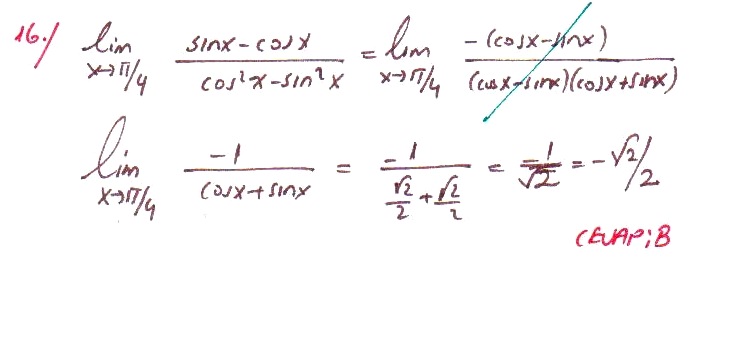 16./ lim x→π/4 (sinx - cosx)/(cos²x - sin²x) = lim x→π/4 -(cosx - sinx)/((cosx - sinx)(cosx + sinx))
lim x→π/4 -1/(cosx + sinx) = -1/(√2/2 + √2/2) = -1/√2 = -√2/2
CEVAP: B